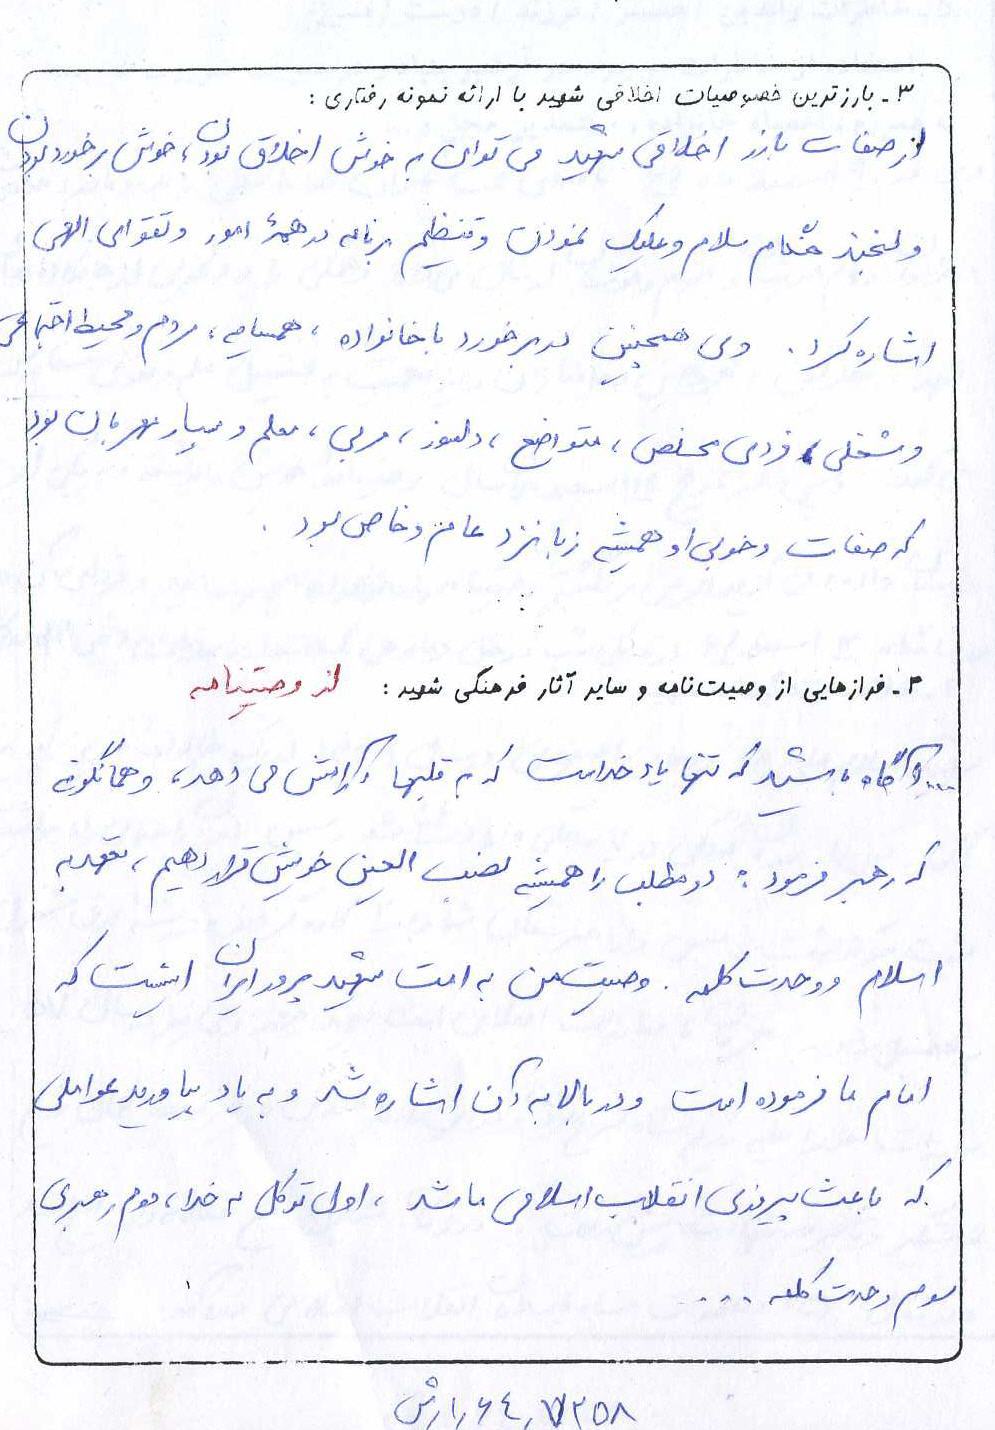 ۳ـ بارزترین خصوصیات اخلاقی شهید با ارائه نمونه رفتاری :
از صفات بارز اخلاقی شهید می توان به خوش اخلاق بودن ، خوش برخورد بودن
و لبخند هنگام سلام و علیک نمودن و تنظیم برنامه در همهٔ امور و تقوای الهی
اشاره کرد . وی همچنین در برخورد با خانواده ، همسایه ، مردم و محیط اجتماعی
و شغلی ، فردی مخلص ، متواضع ، دلسوز ، مربی ، معلم و بسیار مهربان بود
که صفات و خوبی او همیشه زبانزد عام و خاص بود .
۴ـ فرازهایی از وصیت نامه و سایر آثار فرهنگی شهید : از وصیتنامه
... آگاه باشید که تنها یاد خداست که به قلبها آرامش می دهد ، و همانگونه
که رهبر فرمود : دو مطلب را همیشه نصب العین خویش قرار دهیم ، تعهد به
اسلام و وحدت کلمه . وصیت من به امت شهید پرور ایران اینست که
امام ما فرموده است و در بالا به آن اشاره شد و به یاد بیاورید عواملی
که باعث پیروزی انقلاب اسلامی ما شد ، اول توکل به خدا ، دوم رهبری
سوم وحدت کلمه ...